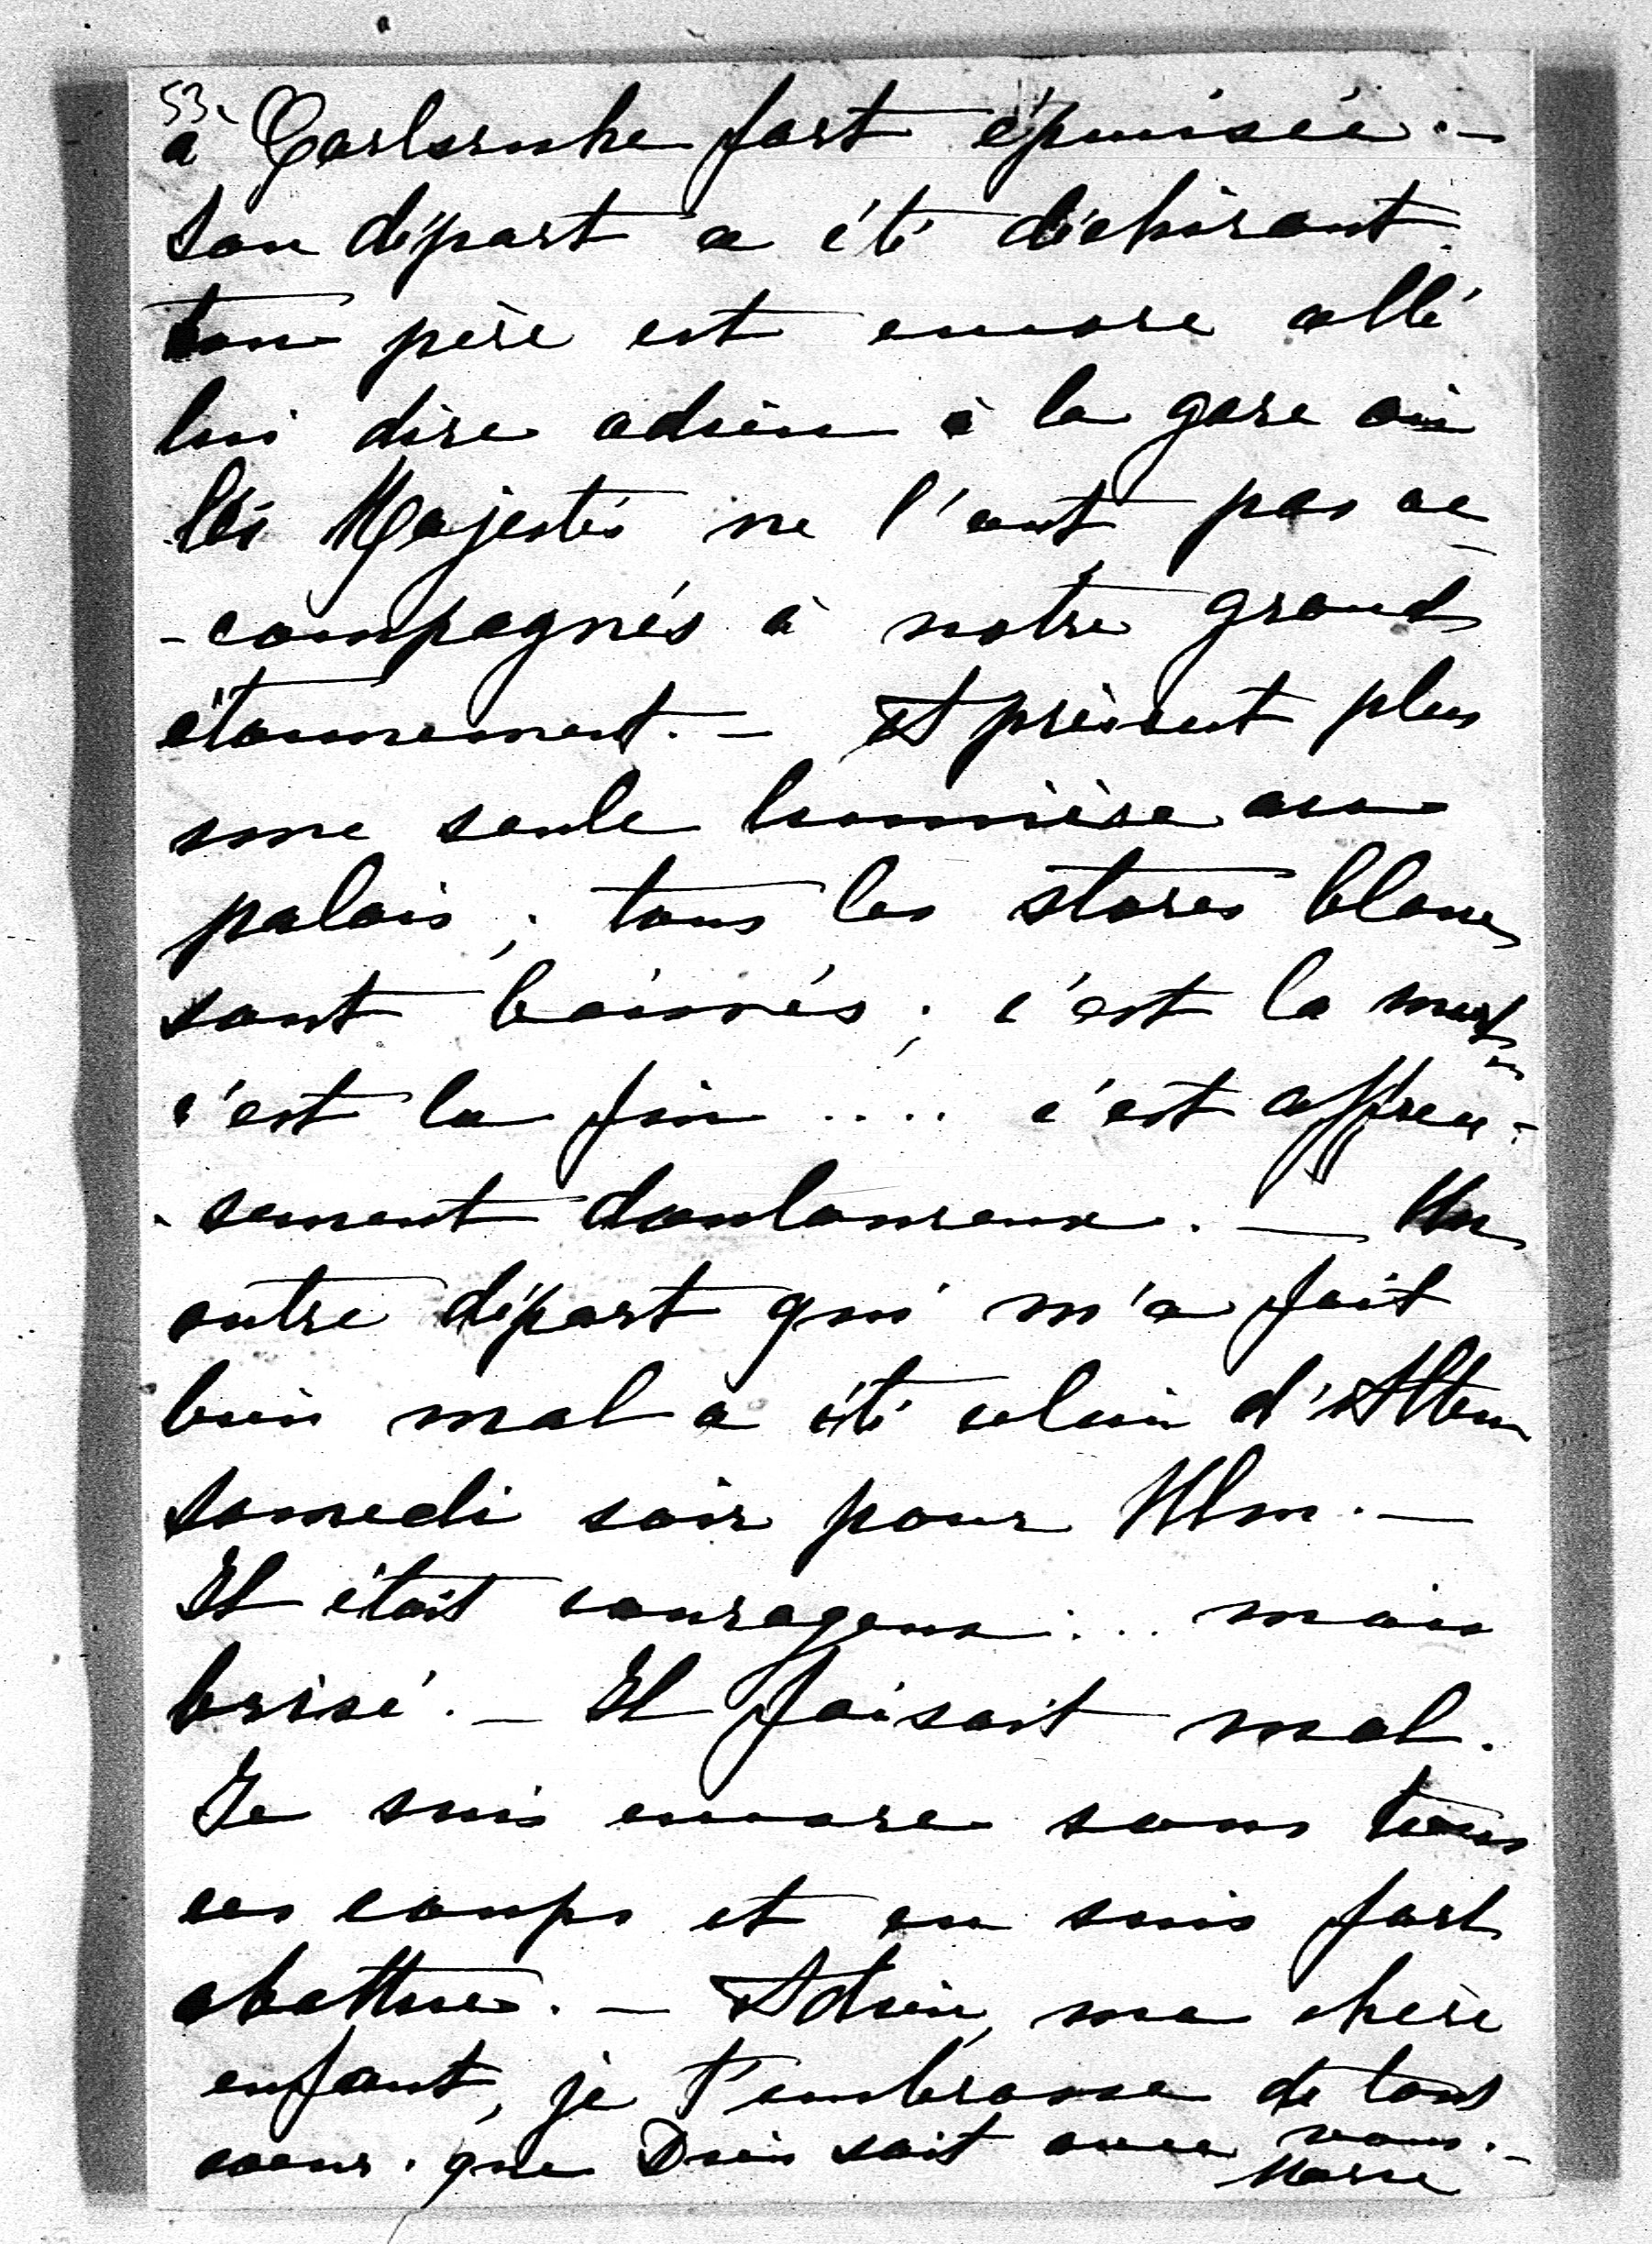 53.
à Carlsruhe fort épuisée. —
Son départ a été déchirant.
ton père est encore allé
lui dire adieu à la gare où
les Majestés ne l'ont pas ac
- compagnés à notre grand
étonnement. — A présent plus
une seule lumière au
palais ; tous les stores blancs
sont baissés ; c'est la mort
c'est la fin .... c'est affreu -
- sement douloureux. — Un
autre départ qui m'a fait
bien mal a été celui d'Alten
samedi soir pour Ulm. —
Il était courageux ... mais
brisé. — Il faisait mal.
Je suis encore sous tous
ces coups et en suis fort
abattue. — Adieu, ma chère
enfant, je t'embrasse de tout
coeur. que Dieu soit avec vous. —